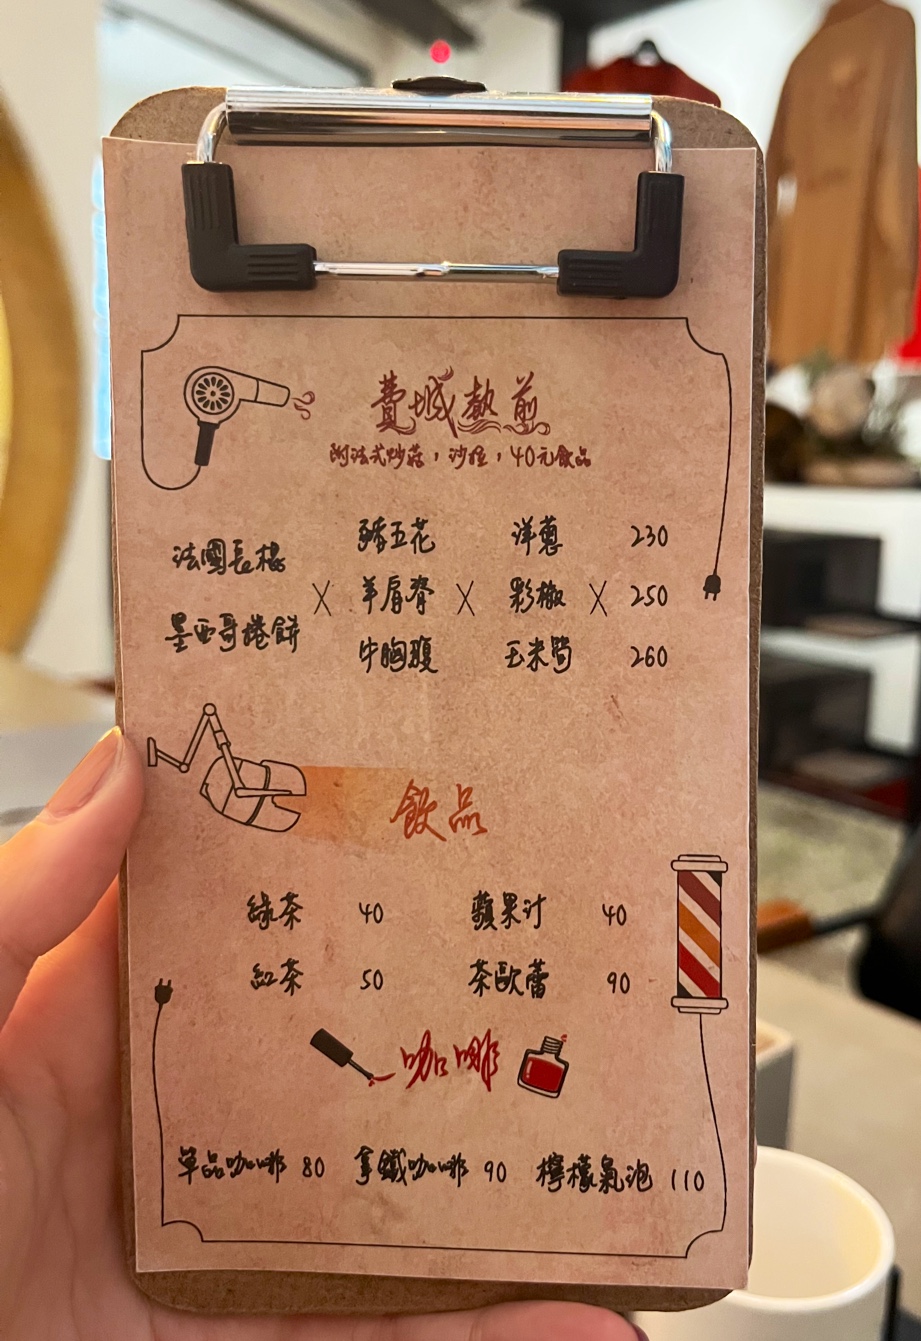 費城熱煎
附法式炒菇，沙拉，40元飲品
豬五花 洋蔥 230
法國長棍
× 羊肩脊 × 彩椒 × 250
墨西哥捲餅
牛胸腹 玉米筍 260
飲品
綠茶 40 蘋果汁 40
紅茶 50 茶歐蕾 90
咖啡
單品咖啡 80 拿鐵咖啡 90 檸檬氣泡 110